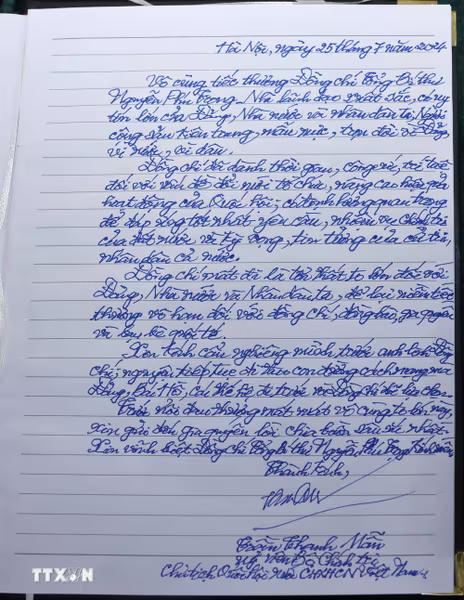 Hà Nội, ngày 25 tháng 7 năm 2024
Vô cùng tiếc thương Đồng chí Tổng Bí thư
Nguyễn Phú Trọng, Nhà lãnh đạo xuất sắc, có uy
tín lớn của Đảng, Nhà nước và nhân dân ta; Người
cộng sản kiên trung, mẫu mực, trọn đời vì Đảng,
vì nước, vì dân.
Đồng chí đã dành thời gian, công sức, trí tuệ
đối với vấn đề đổi mới tổ chức, nâng cao hiệu quả
hoạt động của Quốc hội; chỉ định hướng quan trọng
để đáp ứng tốt nhất yêu cầu, nhiệm vụ chính trị
của đất nước và kỳ vọng, tin tưởng của cử tri,
nhân dân cả nước.
Đồng chí mất đi là tổn thất to lớn đối với
Đảng, Nhà nước và Nhân dân ta, để lại niềm tiếc
thương vô hạn đối với đồng chí, đồng bào, gia quyến
và bạn bè quốc tế.
Xin thành cẩn nghiêng mình trước anh linh Đồng
chí; nguyện tiếp tục đi theo con đường cách mạng mà
Đảng, Bác Hồ, các thế hệ đi trước và Đồng chí đã lựa chọn.
Trước nỗi đau thương mất mát vô cùng to lớn này,
xin gửi đến gia quyến lời chia buồn sâu sắc nhất.
Xin vĩnh biệt Đồng chí Tổng Bí thư Nguyễn Phú Trọng kính mến
Thành kính,
Trần Thanh Mẫn
Uỷ viên Bộ Chính trị
Chủ tịch Quốc hội nước CHXHCN Việt Nam
TTXVN